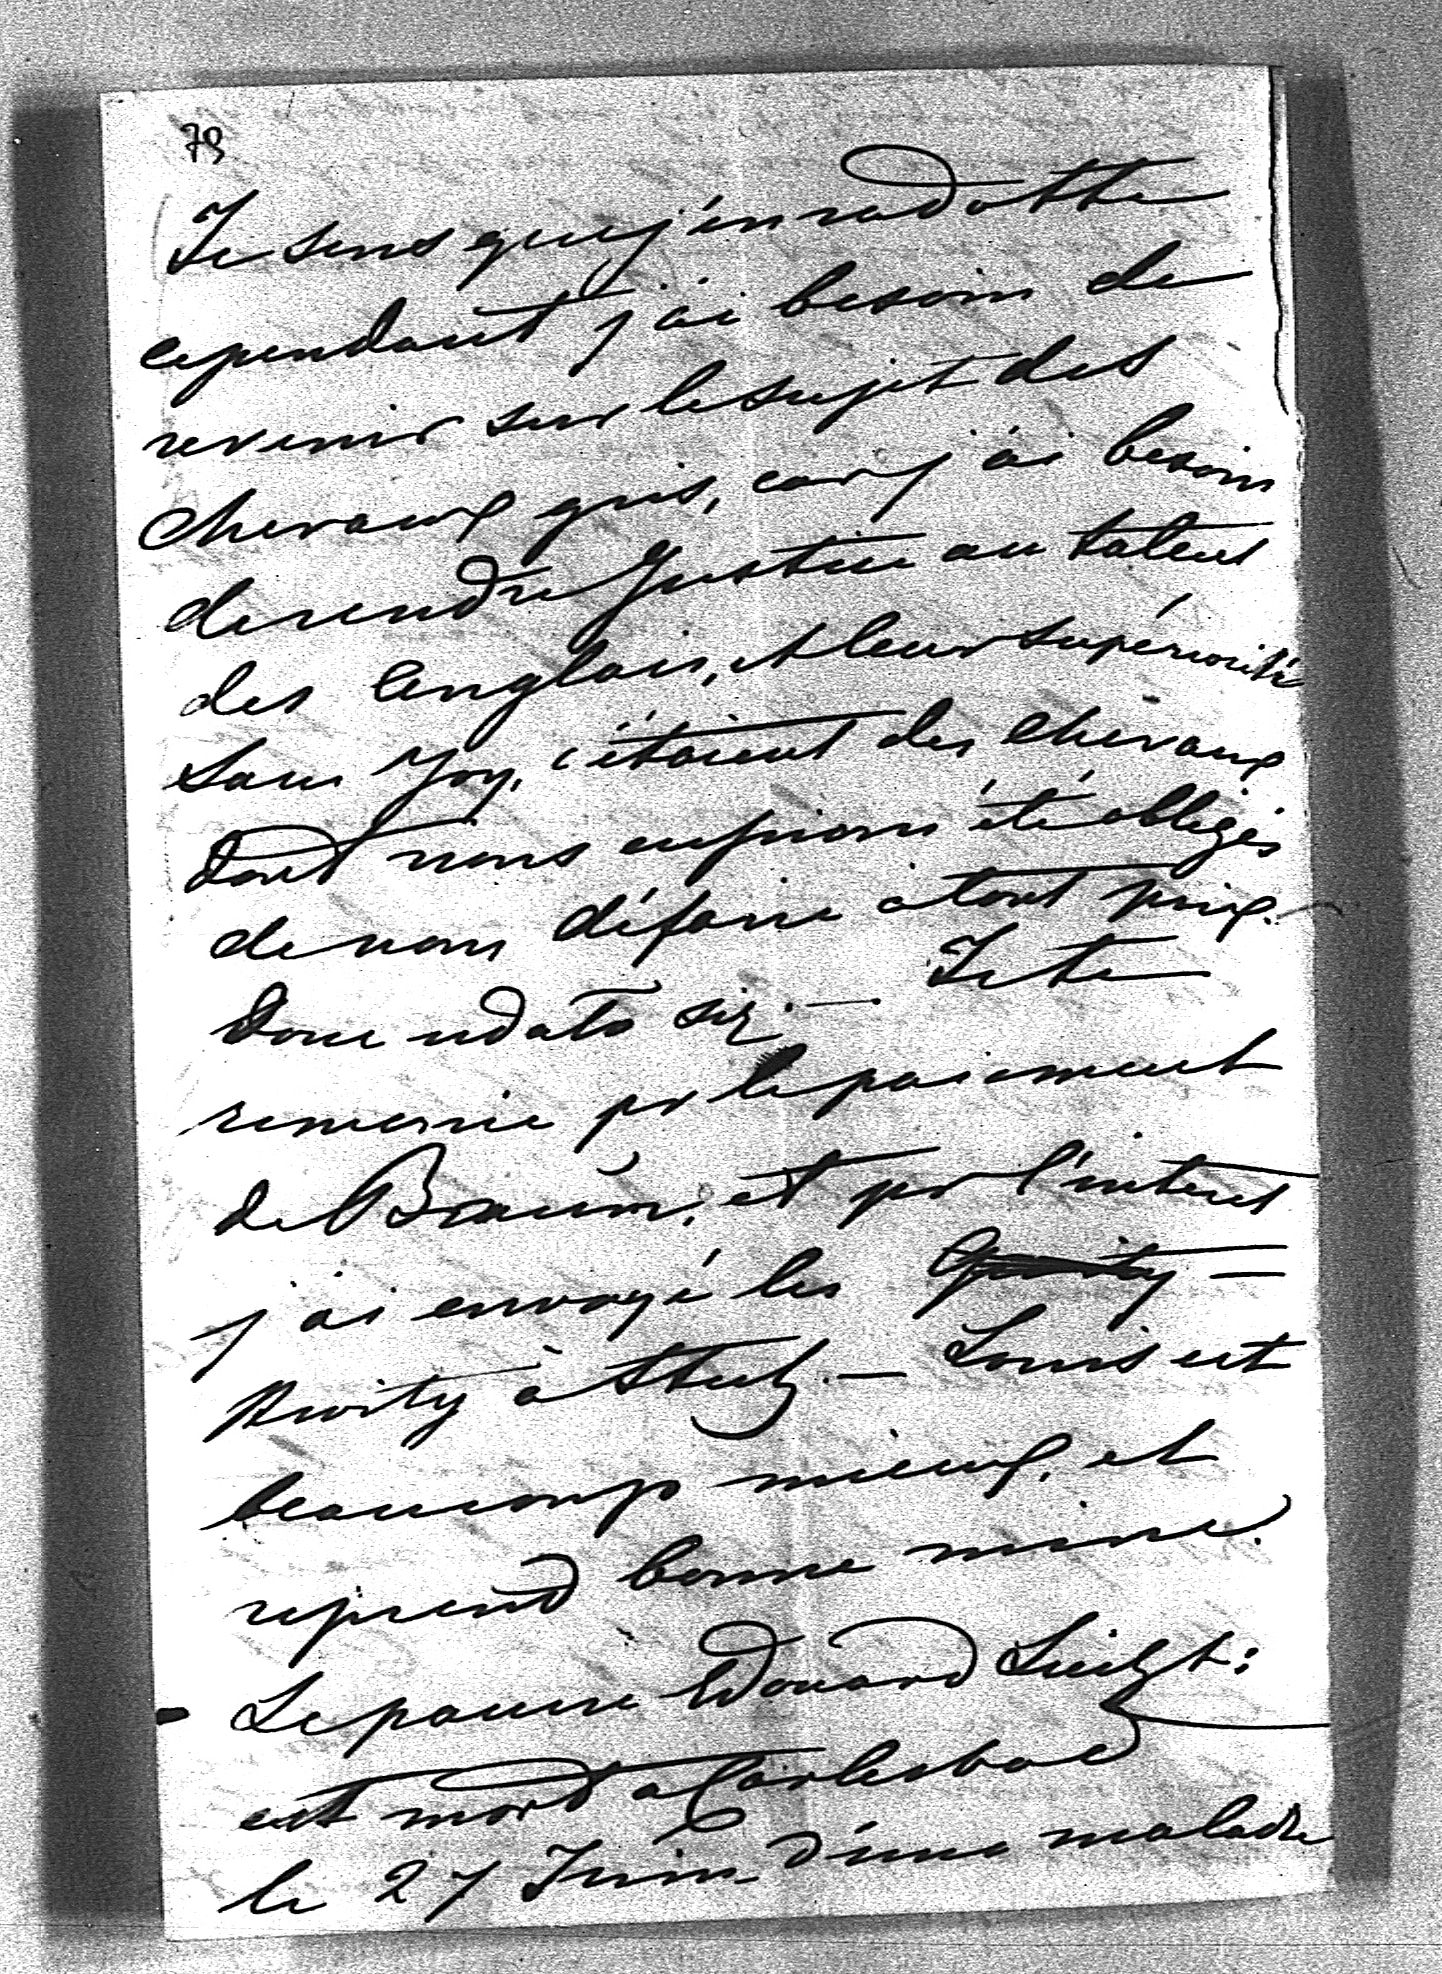 79
Je sens que j'en radotte
cependant j'ai besoin de
revenir sur le sujet des
chevaux gris, car j'ai besoin
de rendre justice au talent
des Anglais, et leur supériorité
sans Joy, c'étaient des chevaux
dont nous eussions été obligés
de nous défaire à tout prix.
Donc
Je te
remercie pr le paiement
de Braun, et pr l'interet
j'ai envoyé les
à — Louis est
beaucoup mieux, et
reprend bonne mine.
Le pauvre Edouard
est mort a Carlesbad
le 27 Juin d'une maladie